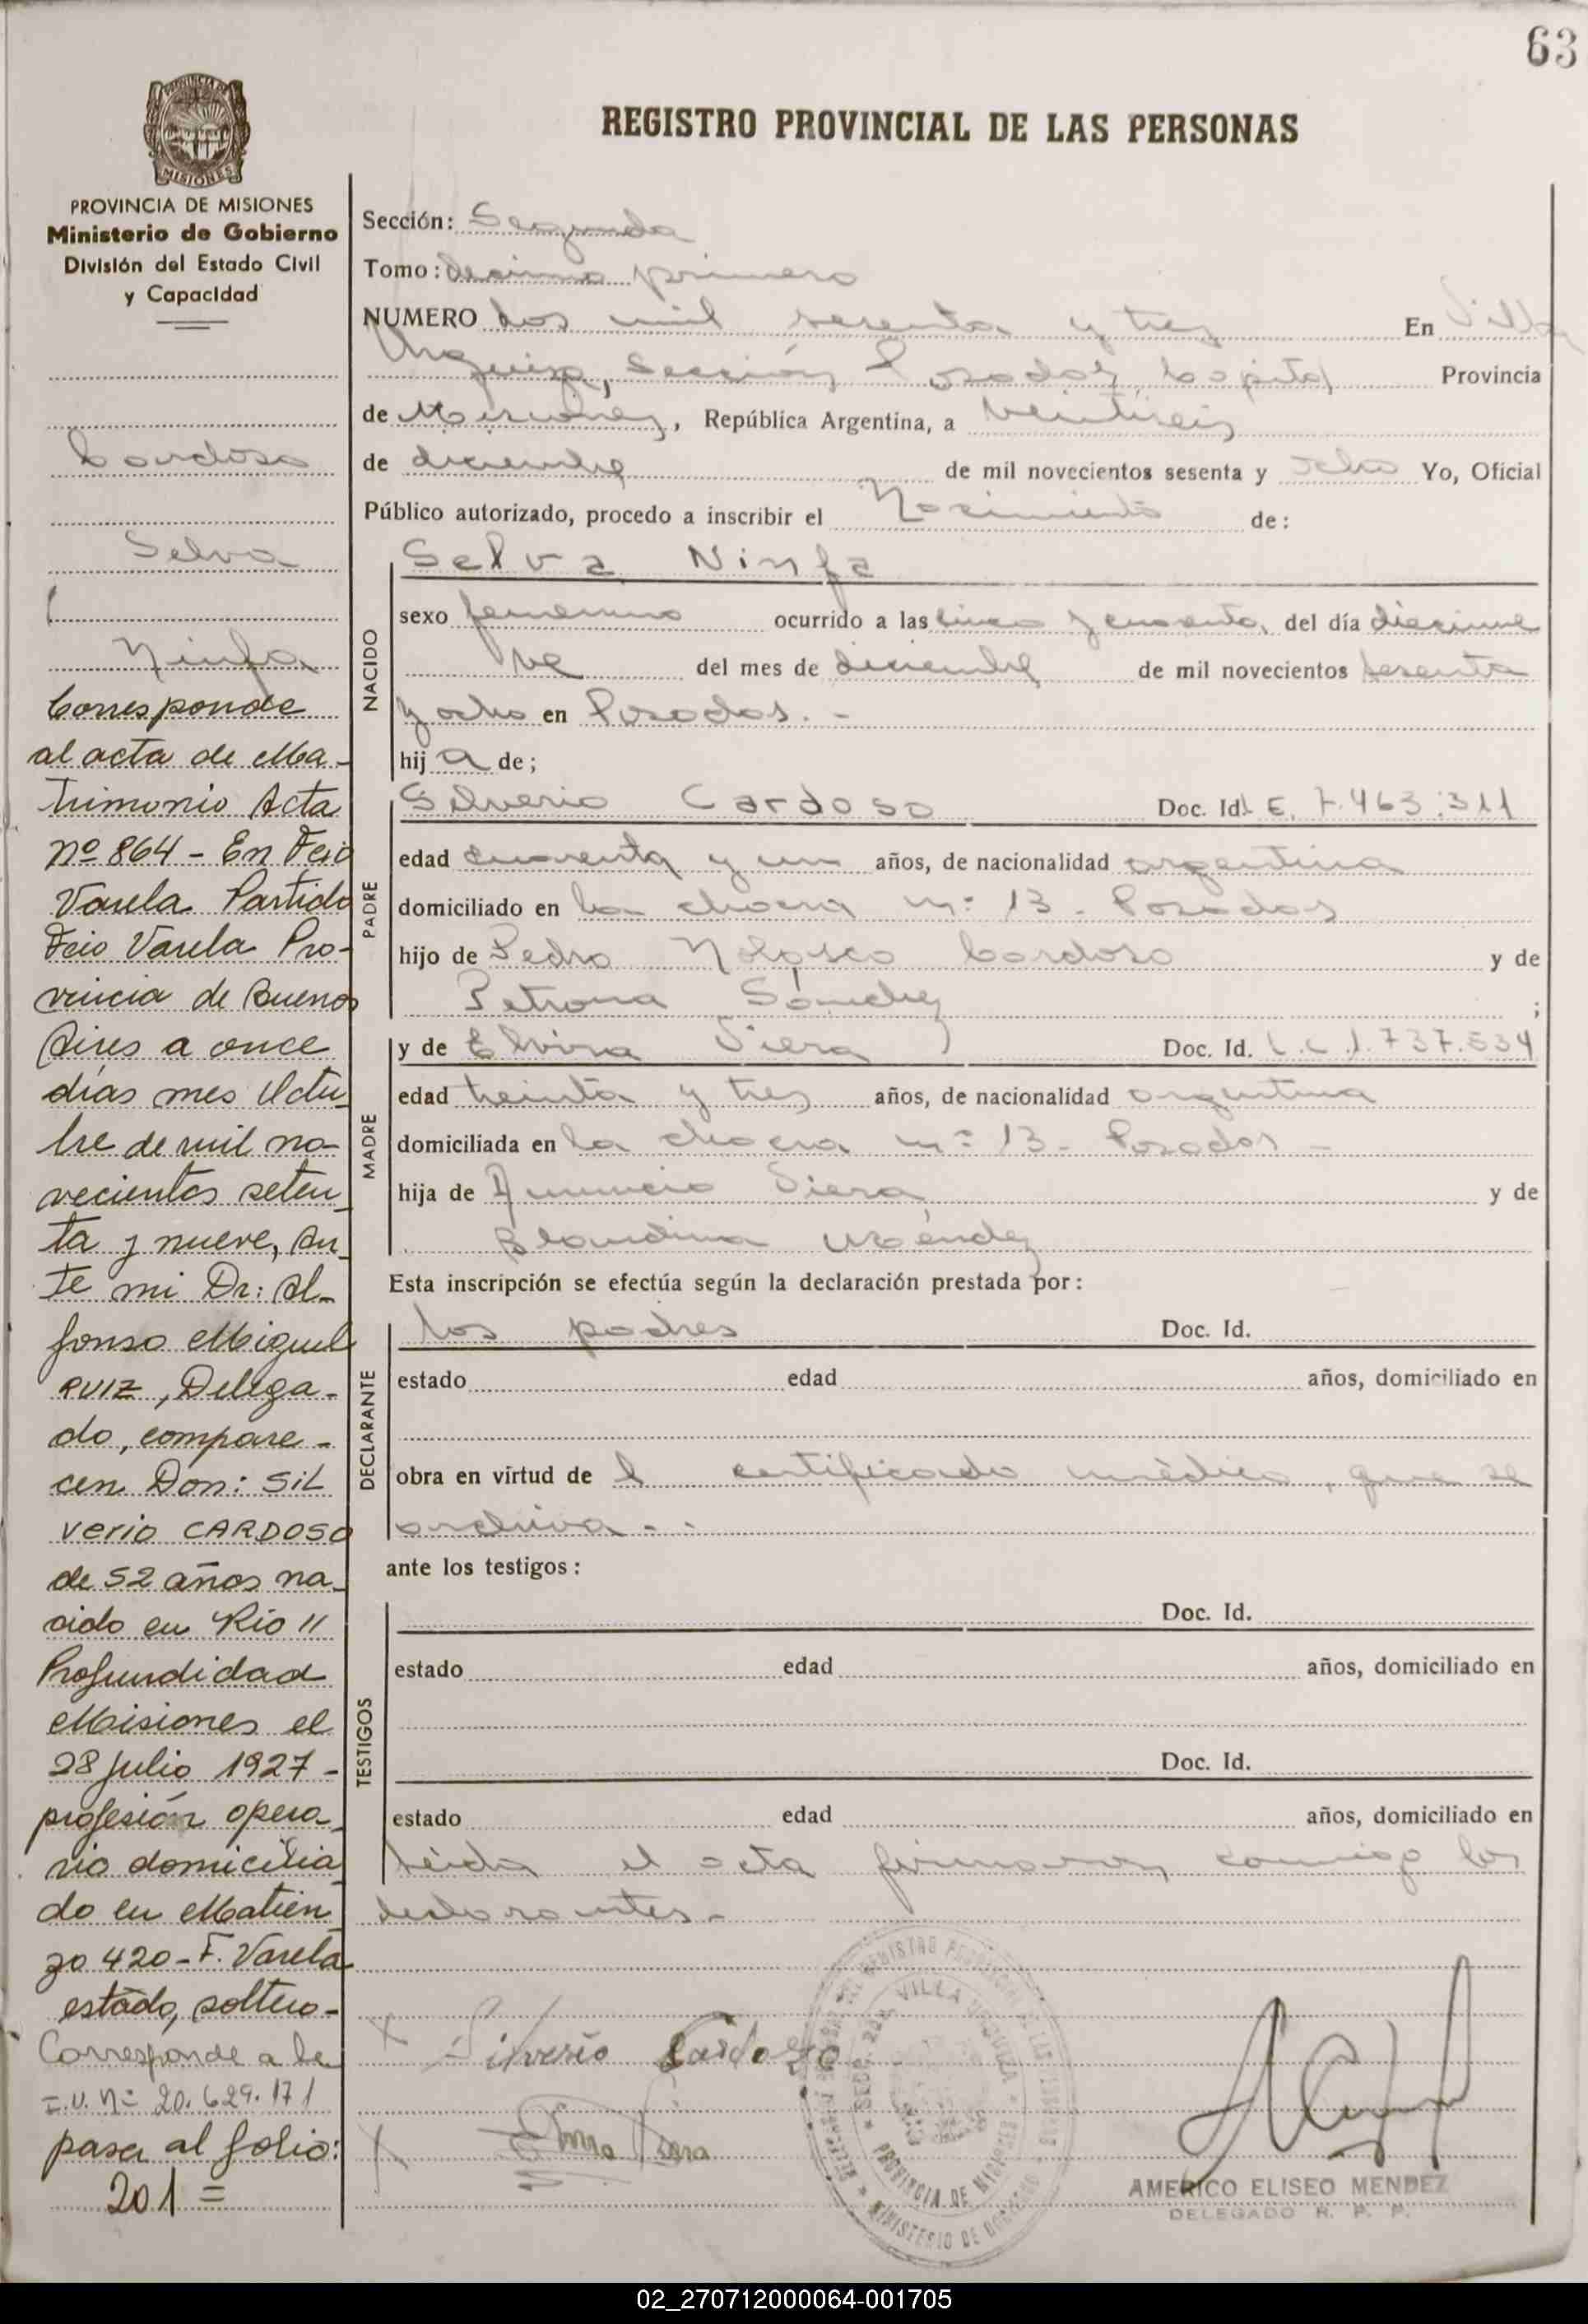 63
REGISTRO PROVINCIAL DE LAS PERSONAS
PROVINCIA DE MISIONES
MISIONES
PROVINCIA DE MISIONES
Ministerio de Gobierno
División del Estado Civil
y Capacidad
Cardoso
Selva
Ninfa
Corresponde
al acta de Ma-
trimonio Acta
nº 864 - En Fcio
Varela Partido
Fcio Varela Pro-
vincia de Buenos
Aires a once
días mes Octu
bre de mil no-
vecientos seten
ta y nueve, An
te mi Dr: Al-
fonso Miguel
RUIZ, Delega-
do, compare-
cen Don: SIL
verio CARDOSO
de 52 años na
cido en Rio 11
Profundidad
Misiones el
28 julio 1927 -
profesión opera
rio domicilia
do en Matien
zo 420 - F. Varela
estado, soltero -
Corresponde a la
I.U. Nº 20.629.171
pasa al folio:
201 =
Sección: Segunda
Tomo: decimo primero
NUMERO dos mil sesenta y tres En Villa
Urquiza, Sección Posadas Capital Provincia
de Misiones, República Argentina, a veintiseis
de diciembre de mil novecientos sesenta y ocho Yo, Oficial
Público autorizado, procedo a inscribir el Nacimiento de:
NACIDO
Selva Ninfa
sexo femenino ocurrido a las cinco y cuarenta, del día diecinue
ve del mes de diciembre de mil novecientos sesenta
y ocho en Posadas. -
hija de;
PADRE
Silverio Cardoso Doc. Id. E. 7.463.311
edad cuarenta y un años, de nacionalidad argentina
domiciliado en la chacra nº 13 - Posadas
hijo de Pedro Nolasco Cardoso y de
Petrona Sánchez ;
MADRE
y de Elvira Viera Doc. Id. L.C.1.737.534
edad treinta y tres años, de nacionalidad argentina
domiciliada en la chacra nº 13 - Posadas -
hija de Anuncio Viera y de
Blandina Méndez
Esta inscripción se efectúa según la declaración prestada por:
DECLARANTE
los padres Doc. Id.
estado edad años, domiciliado en
obra en virtud de l certificado médico, que se
archiva - .
ante los testigos:
TESTIGOS
Doc. Id.
estado edad años, domiciliado en
Doc. Id.
estado edad años, domiciliado en
Leida el acta firmaron conmigo los
declarantes -
x Silverio Cardozo
x Viera
VILLA URQUIZA
PROVINCIA DE MISIONES
MINISTERIO DE GOBIERNO
AMERICO ELISEO MENDEZ
DELEGADO R. P. P.
02_270712000064-001705